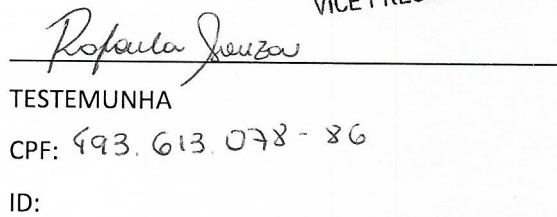 VICE PRES
Rafaela Souza
TESTEMUNHA
CPF: 493.613.078-86
ID: